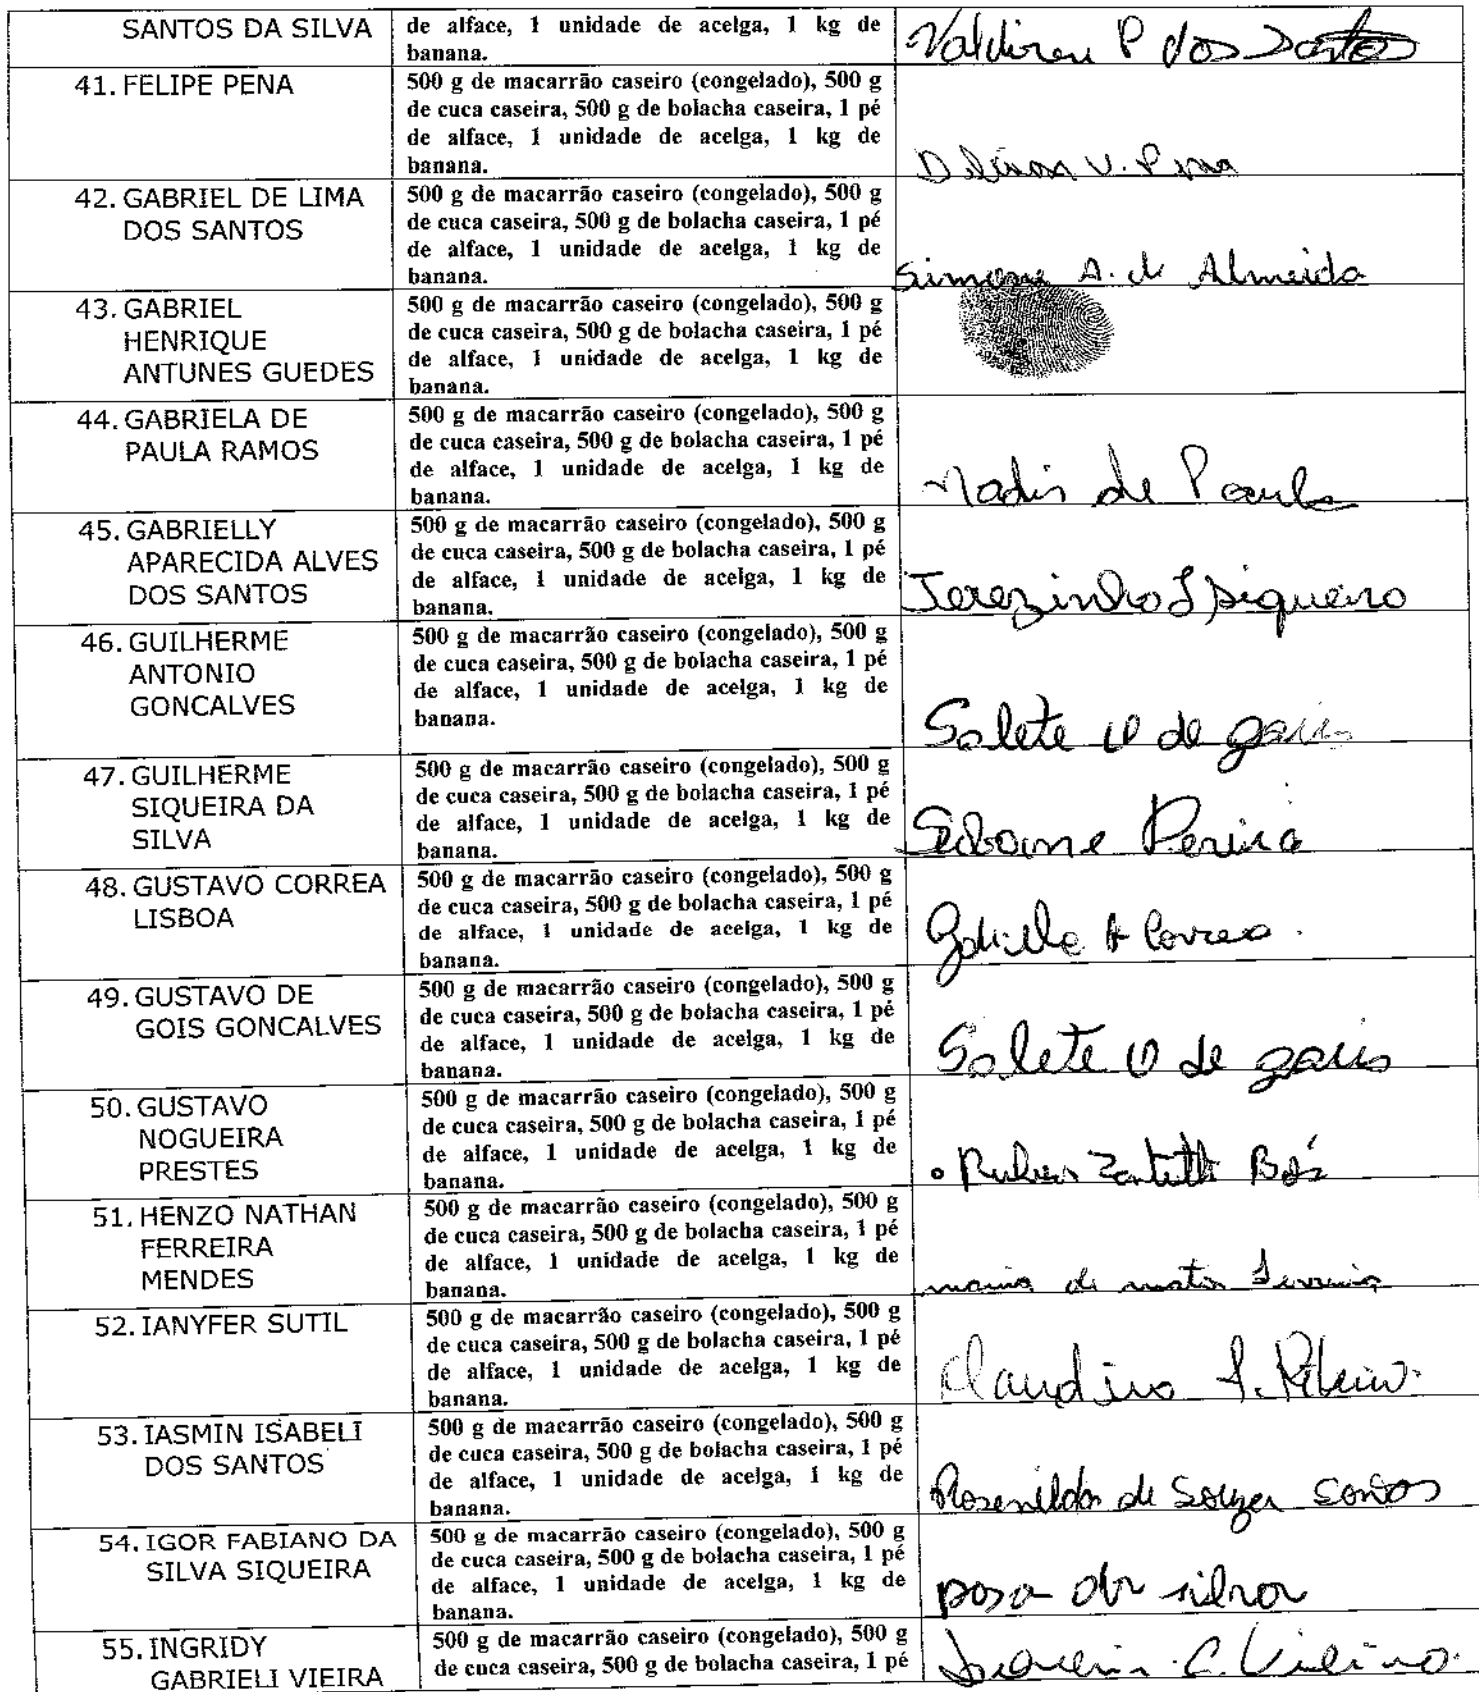 SANTOS DA SILVA
de alface, 1 unidade de acelga, 1 kg de
banana.
Valdireu P dos Santos
41. FELIPE PENA
500 g de macarrão caseiro (congelado), 500 g
de cuca caseira, 500 g de bolacha caseira, 1 pé
de alface, 1 unidade de acelga, 1 kg de
banana.
V. Pena
42. GABRIEL DE LIMA
DOS SANTOS
500 g de macarrão caseiro (congelado), 500 g
de cuca caseira, 500 g de bolacha caseira, 1 pé
de alface, 1 unidade de acelga, 1 kg de
banana.
Simone A. de Almeida
43. GABRIEL
HENRIQUE
ANTUNES GUEDES
500 g de macarrão caseiro (congelado), 500 g
de cuca caseira, 500 g de bolacha caseira, 1 pé
de alface, 1 unidade de acelga, 1 kg de
banana.
44. GABRIELA DE
PAULA RAMOS
500 g de macarrão caseiro (congelado), 500 g
de cuca caseira, 500 g de bolacha caseira, 1 pé
de alface, 1 unidade de acelga, 1 kg de
banana.
Nadir de Paula
45. GABRIELLY
APARECIDA ALVES
DOS SANTOS
500 g de macarrão caseiro (congelado), 500 g
de cuca caseira, 500 g de bolacha caseira, 1 pé
de alface, 1 unidade de acelga, 1 kg de
banana.
Terezinha S Siqueira
46. GUILHERME
ANTONIO
GONCALVES
500 g de macarrão caseiro (congelado), 500 g
de cuca caseira, 500 g de bolacha caseira, 1 pé
de alface, 1 unidade de acelga, 1 kg de
banana.
Salete de gois
47. GUILHERME
SIQUEIRA DA
SILVA
500 g de macarrão caseiro (congelado), 500 g
de cuca caseira, 500 g de bolacha caseira, 1 pé
de alface, 1 unidade de acelga, 1 kg de
banana.
Pereira
48. GUSTAVO CORREA
LISBOA
500 g de macarrão caseiro (congelado), 500 g
de cuca caseira, 500 g de bolacha caseira, 1 pé
de alface, 1 unidade de acelga, 1 kg de
banana.
A Correa.
49. GUSTAVO DE
GOIS GONCALVES
500 g de macarrão caseiro (congelado), 500 g
de cuca caseira, 500 g de bolacha caseira, 1 pé
de alface, 1 unidade de acelga, 1 kg de
banana.
Salete de gois
50. GUSTAVO
NOGUEIRA
PRESTES
500 g de macarrão caseiro (congelado), 500 g
de cuca caseira, 500 g de bolacha caseira, 1 pé
de alface, 1 unidade de acelga, 1 kg de
banana.
51. HENZO NATHAN
FERREIRA
MENDES
500 g de macarrão caseiro (congelado), 500 g
de cuca caseira, 500 g de bolacha caseira, 1 pé
de alface, 1 unidade de acelga, 1 kg de
banana.
maria de matos Ferreira
52. IANYFER SUTIL
500 g de macarrão caseiro (congelado), 500 g
de cuca caseira, 500 g de bolacha caseira, 1 pé
de alface, 1 unidade de acelga, 1 kg de
banana.
Claudino Ribeiro.
53. IASMIN ISABELI
DOS SANTOS
500 g de macarrão caseiro (congelado), 500 g
de cuca caseira, 500 g de bolacha caseira, 1 pé
de alface, 1 unidade de acelga, 1 kg de
banana.
Rosenilda de Souza Santos
54. IGOR FABIANO DA
SILVA SIQUEIRA
500 g de macarrão caseiro (congelado), 500 g
de cuca caseira, 500 g de bolacha caseira, 1 pé
de alface, 1 unidade de acelga, 1 kg de
banana.
rosa da silva
55. INGRIDY
GABRIELI VIEIRA
500 g de macarrão caseiro (congelado), 500 g
de cuca caseira, 500 g de bolacha caseira, 1 pé